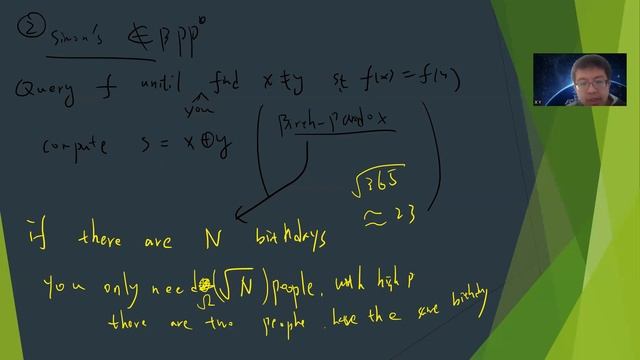 ② Simon's ∉ BPP^0
Query f until you find x≠y st f(x)=f(y)
compute s = x⊕y
(Birth-Paradox)
√365
≈ 23
if there are N birthdays
you only need Ω(√N) people, with high p
there are two people have the same birthday
XY